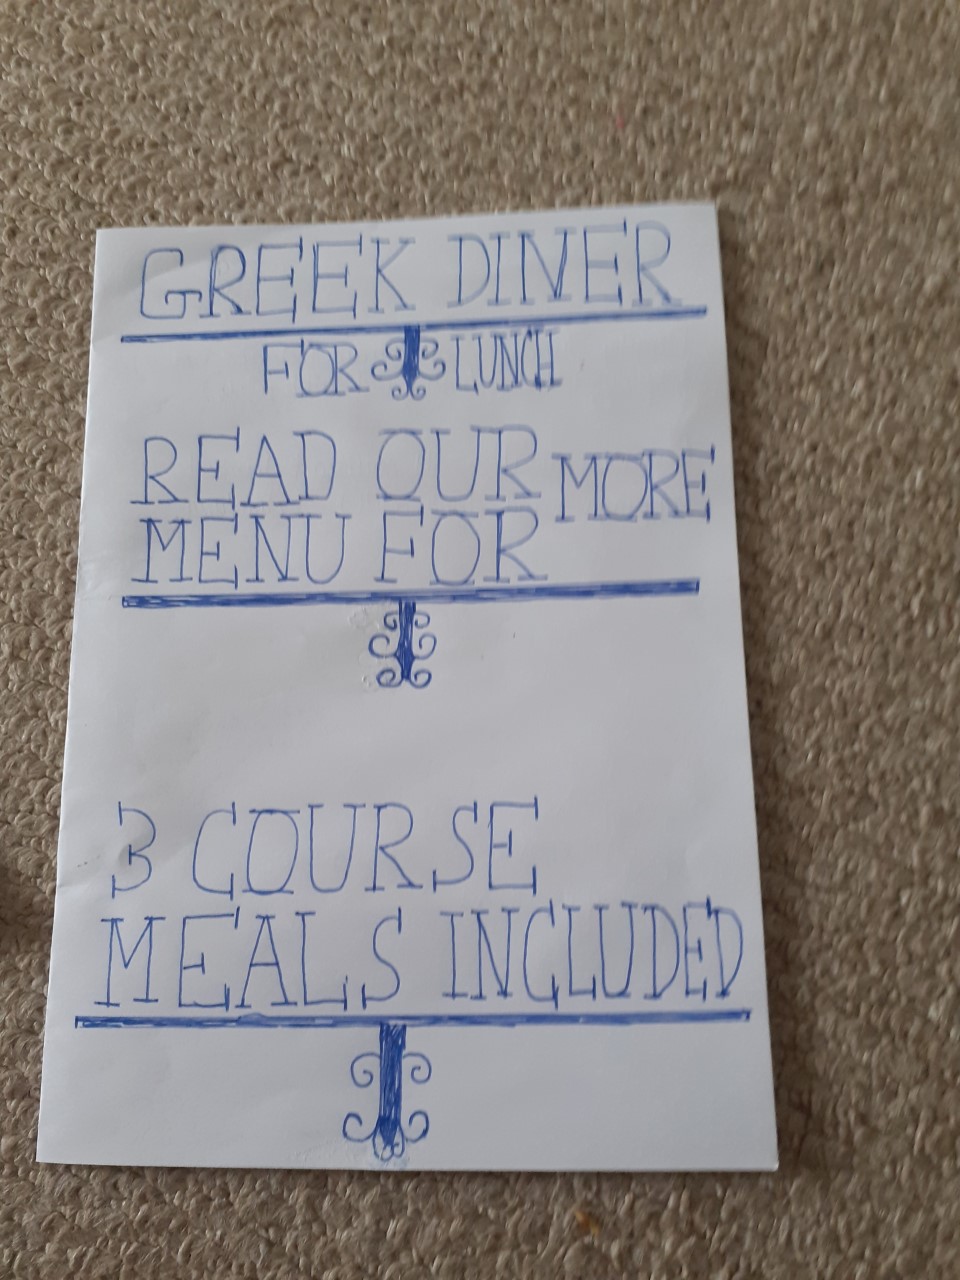 GREEK DINER
FOR LUNCH
READ OUR MORE
MENU FOR
3 COURSE
MEALS INCLUDED